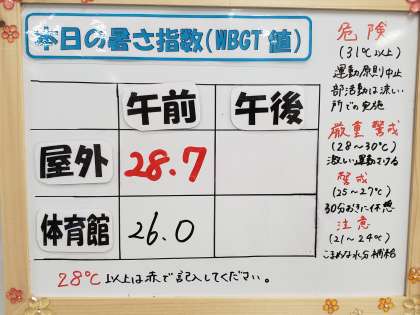 本日の暑さ指数(WBGT値)
午前 午後
屋外 28.7
体育館 26.0
28℃以上は赤で記入してください。
危険
(31℃以上)
運動原則中止
部活動は涼しい
所での実施
厳重警戒
(28～30℃)
激しい運動さける
警戒
(25～27℃)
30分おきに休憩
注意
(21～24℃)
こまめな水分補給